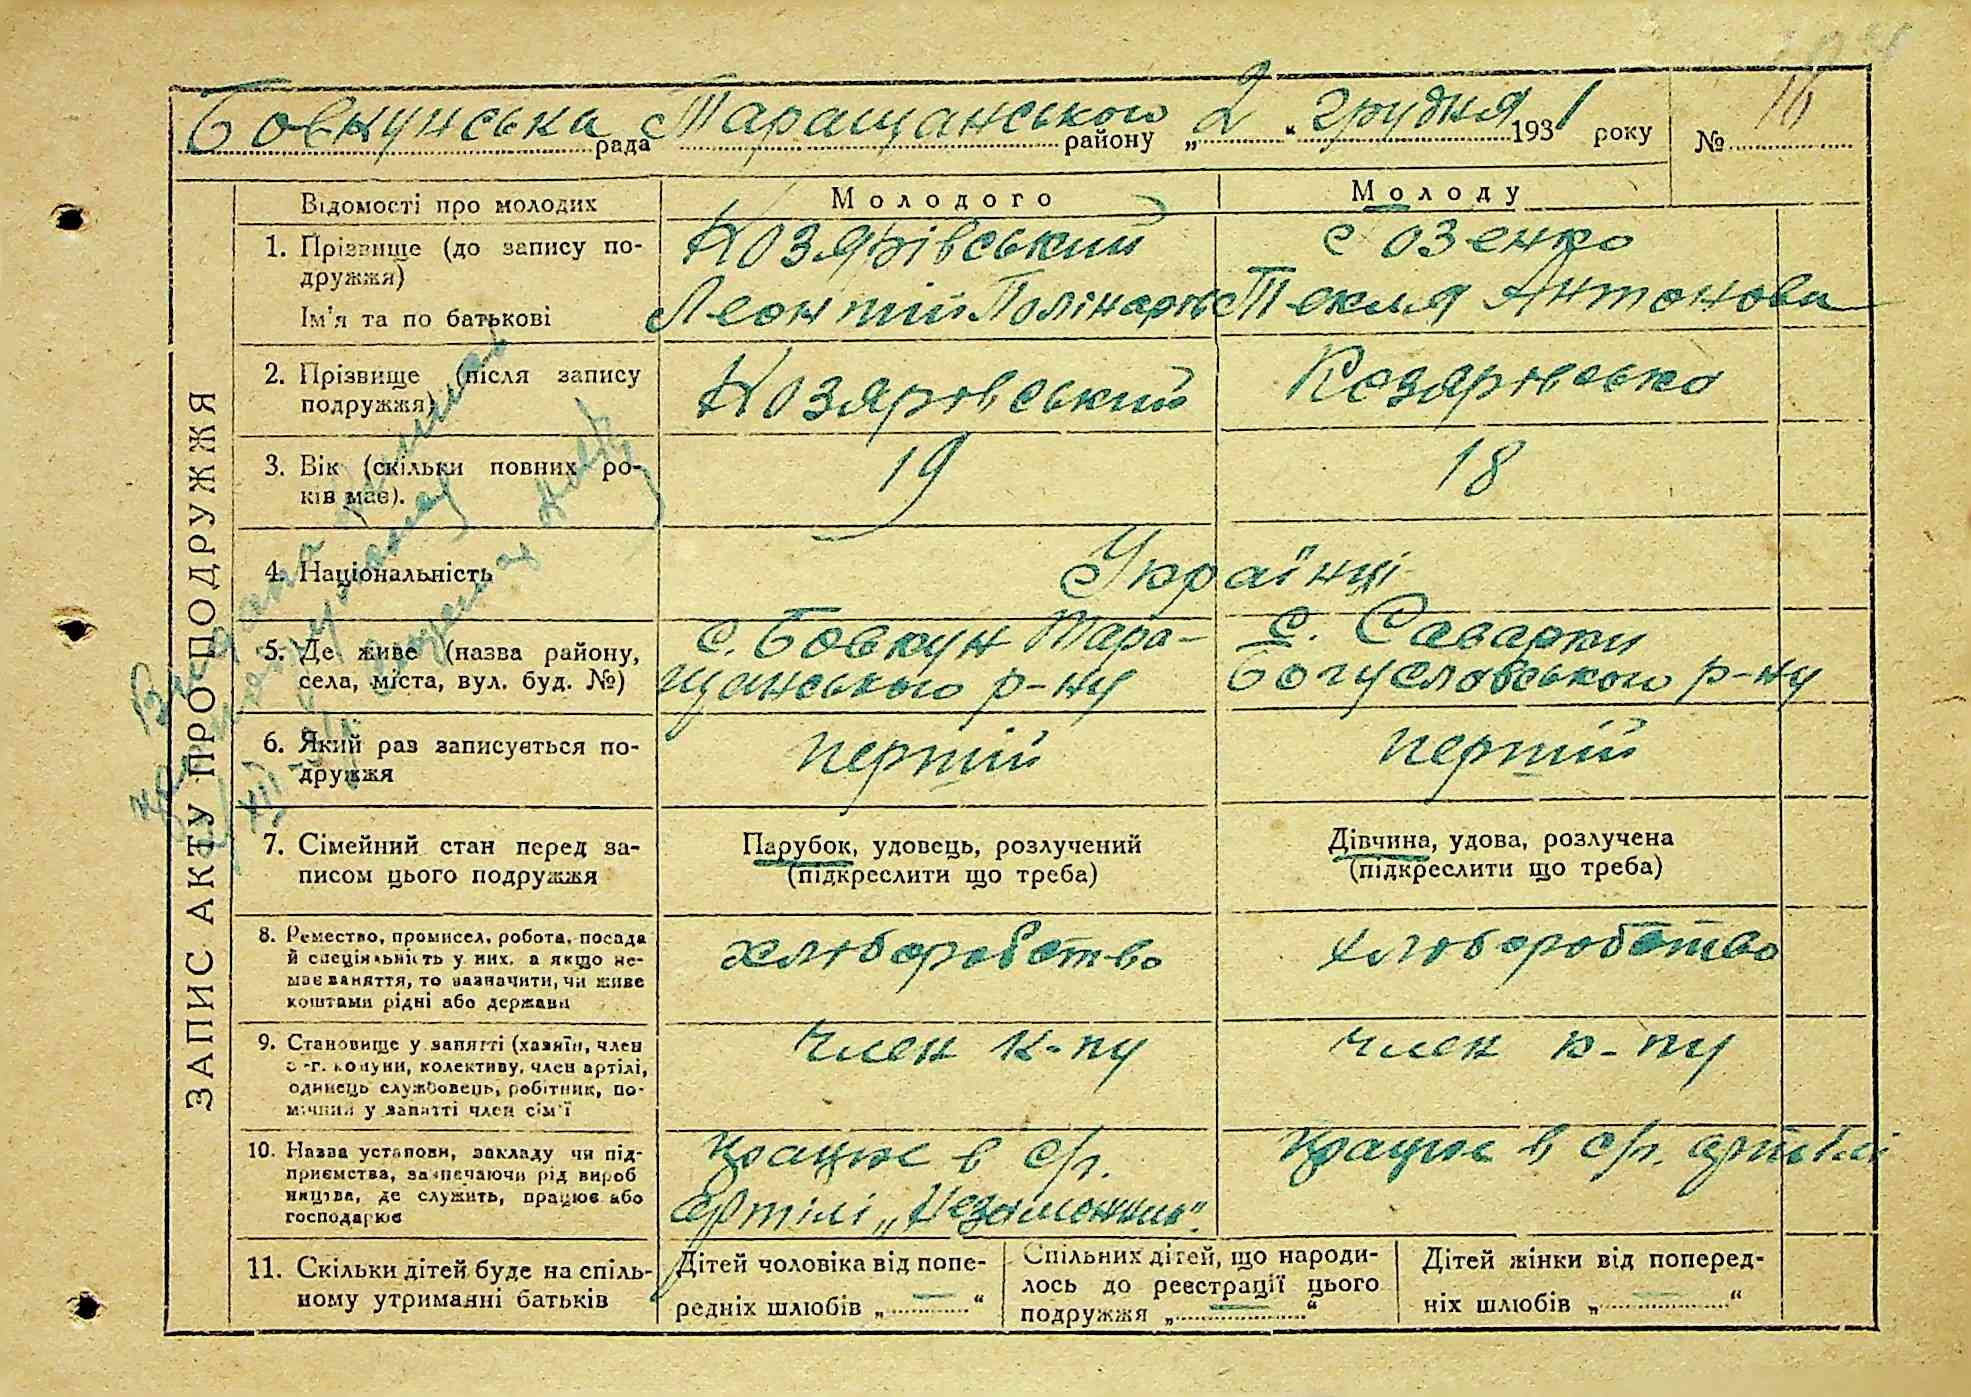 Бовкунська рада Таращанського району „2“ грудня 1931 року № 16
ЗАПИС АКТУ ПРО ПОДРУЖЖЯ
Відомості про молодих
Молодого
Молоду
1. Прізвище (до запису по-
дружжя)
Ім'я та по батькові
Козярівський
Леонтій Полінарів
Созенко
Текля Антонова
2. Прізвище (після запису
подружжя)
Козярівський
Козярівська
3. Вік (скільки повних ро-
ків має).
19
18
4. Національність
Українці
5. Де живе (назва району,
села, міста, вул. буд. №)
с. Бовкун Тара-
щанського р-ну
с. Саварки
Богуславського р-ну
6. Який раз записується по-
дружжя
перший
перший
7. Сімейний стан перед за-
писом цього подружжя
Парубок, удовець, розлучений
(підкреслити що треба)
Дівчина, удова, розлучена
(підкреслити що треба)
8. Ремество, промисел, робота, посада
й спеціяльність у них, а якщо не-
має заняття, то зазначити, чи живе
коштами рідні або держави
хлюборобство
хлюборобство
9. Становище у занятті (хазяїн, член
с.-г. комуни, колективу, член артілі,
одинець службовець, робітник, по-
мічний у занятті член сім'ї
член к-пу
член к-пу
10. Назва установи, закладу чи під-
приємства, зазначаючи рід вироб
ництва, де служить, працює або
господарює
працює в с/г.
артілі „Незаможник“.
працює в с/г. артілі
11. Скільки дітей буде на спіль-
ному утриманні батьків
Дітей чоловіка від попе-
редніх шлюбів „—“
Спільних дітей, що народи-
лось до реєстрації цього
подружжя „—“
Дітей жінки від поперед-
ніх шлюбів „—“